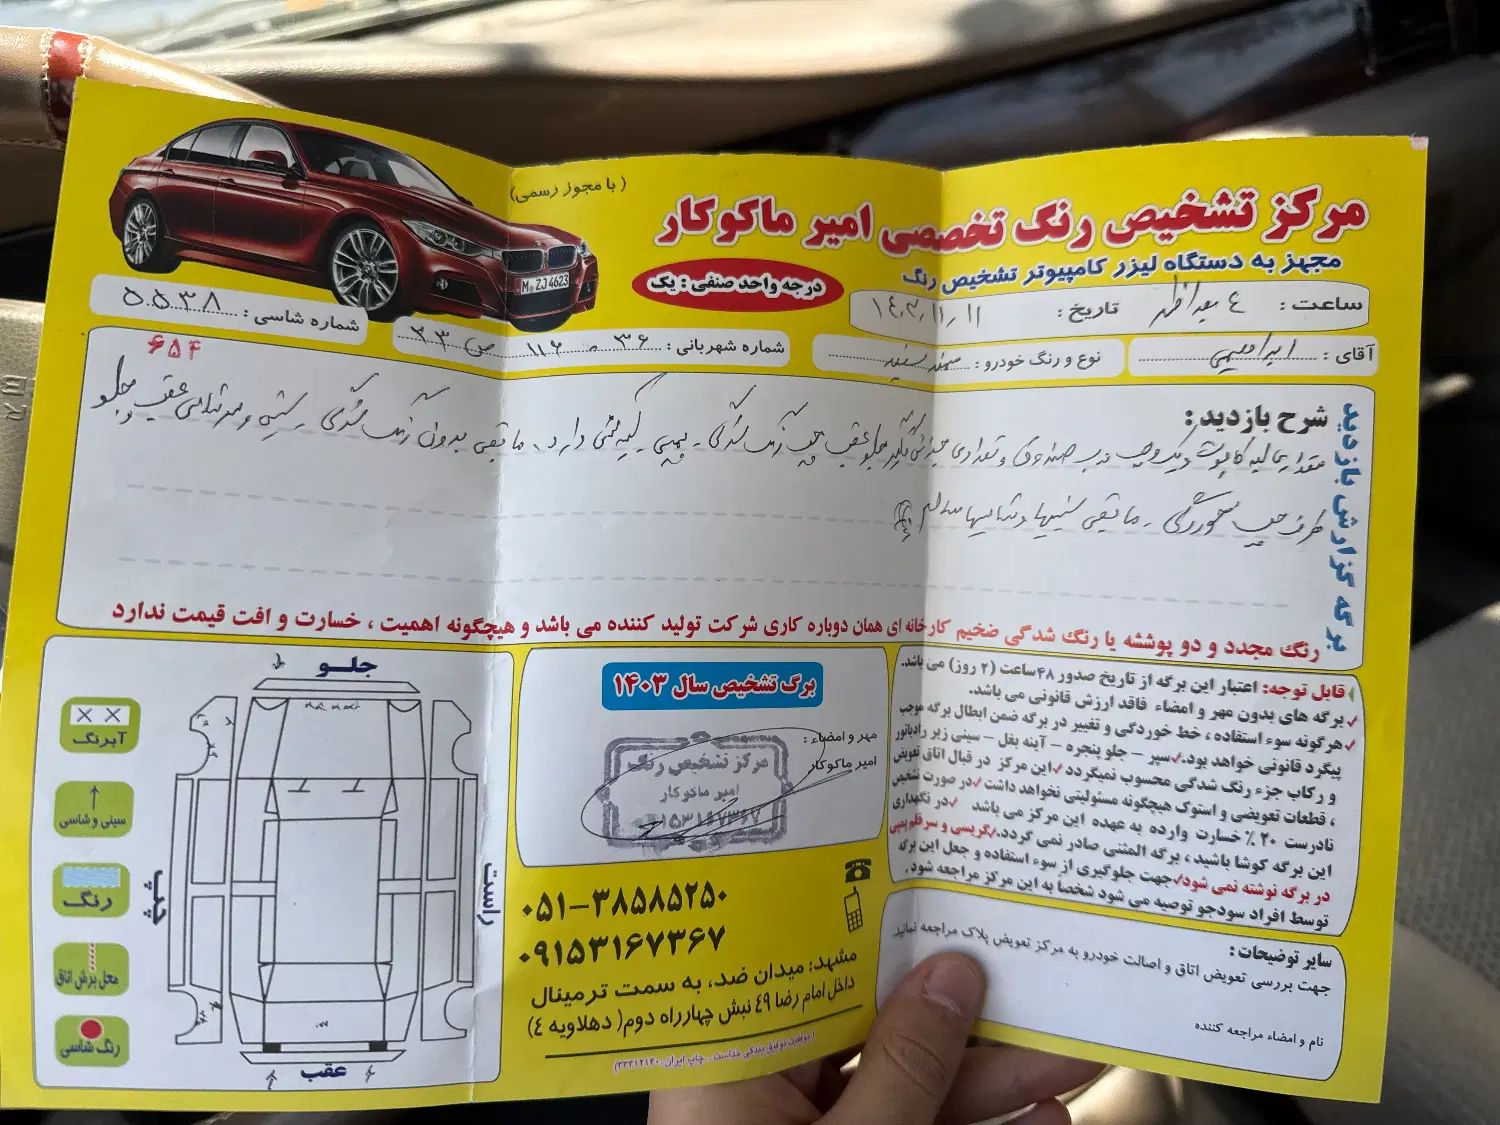 (با مجوز رسمی)
مرکز تشخیص رنگ تخصصی امیر ماکوکار
مجهز به دستگاه لیزر کامپیوتر تشخیص رنگ
درجه واحد صنفی : یک
M ZJ 4623
ساعت : ٤ بعد از ظهر تاریخ :
آقای : ابراهیمی
نوع و رنگ خودرو : سمند سفید
شماره شهربانی : ۳۶ - ۱۱۶ ص ۲۳
شماره شاسی : ۵۰۵۰۳۸
۶۵۴
برگه گزارش بازدید
شرح بازدید :
مقداری لبه کاپوت و یک وجب درب صندوق و تعدادی جلو عقب چپ رنگ شدگی - دارد. مابقی بدون رنگ شدگی - سینی و عقب و جلو
طرف چپ خوردگی - مابقی سینیها و شاسیها سالم
رنگ مجدد و دو پوششه یا رنگ شدگی ضخیم کارخانه ای همان دوباره کاری شرکت تولید کننده می باشد و هیچگونه اهمیت ، خسارت و افت قیمت ندارد
قابل توجه: اعتبار این برگه از تاریخ صدور ۴۸ساعت (۲ روز) می باشد.
✓برگه های بدون مهر و امضاء فاقد ارزش قانونی می باشد.
✓هرگونه سوء استفاده ، خط خوردگی و تغییر در برگه ضمن ابطال برگه موجب
پیگرد قانونی خواهد بود.✓سپر – جلو پنجره – آینه بغل – سینی زیر رادیاتور
و رکاب جزء رنگ شدگی محسوب نمیگردد ✓این مرکز در قبال اتاق تعویض
، قطعات تعویضی و استوک هیچگونه مسئولیتی نخواهد داشت ✓در صورت تشخیص
نادرست ۲۰ ٪ خسارت وارده به عهده این مرکز می باشد ✓در نگهداری
این برگه کوشا باشید ، برگه المثنی صادر نمی گردد.✓گریسی و سرقلم پمپی
در برگه نوشته نمی شود✓جهت جلوگیری از سوء استفاده و جعل این برگه
توسط افراد سودجو توصیه می شود شخصاً به این مرکز مراجعه شود.
سایر توضیحات :
جهت بررسی تعویض اتاق و اصالت خودرو به مرکز تعویض پلاک مراجعه نمائید.
نام و امضاء مراجعه کننده
برگ تشخیص سال ۱۴۰۳
مهر و امضاء :
امیر ماکوکار
مرکز تشخیص رنگ
امیر ماکوکار
۰۹۱۵۳۱۶۷۳۶۷
۰۵۱-۳۸۵۸۵۲۵۰
۰۹۱۵۳۱۶۷۳۶۷
مشهد: میدان ضد، به سمت ترمینال
داخل امام رضا ۴۹ نبش چهارراه دوم( دهلاویه ۴)
جلــو
چپ
راست
عقب
آبرنگ
سینی و شاسی
رنگ
محل برش اتاق
رنگ شاسی